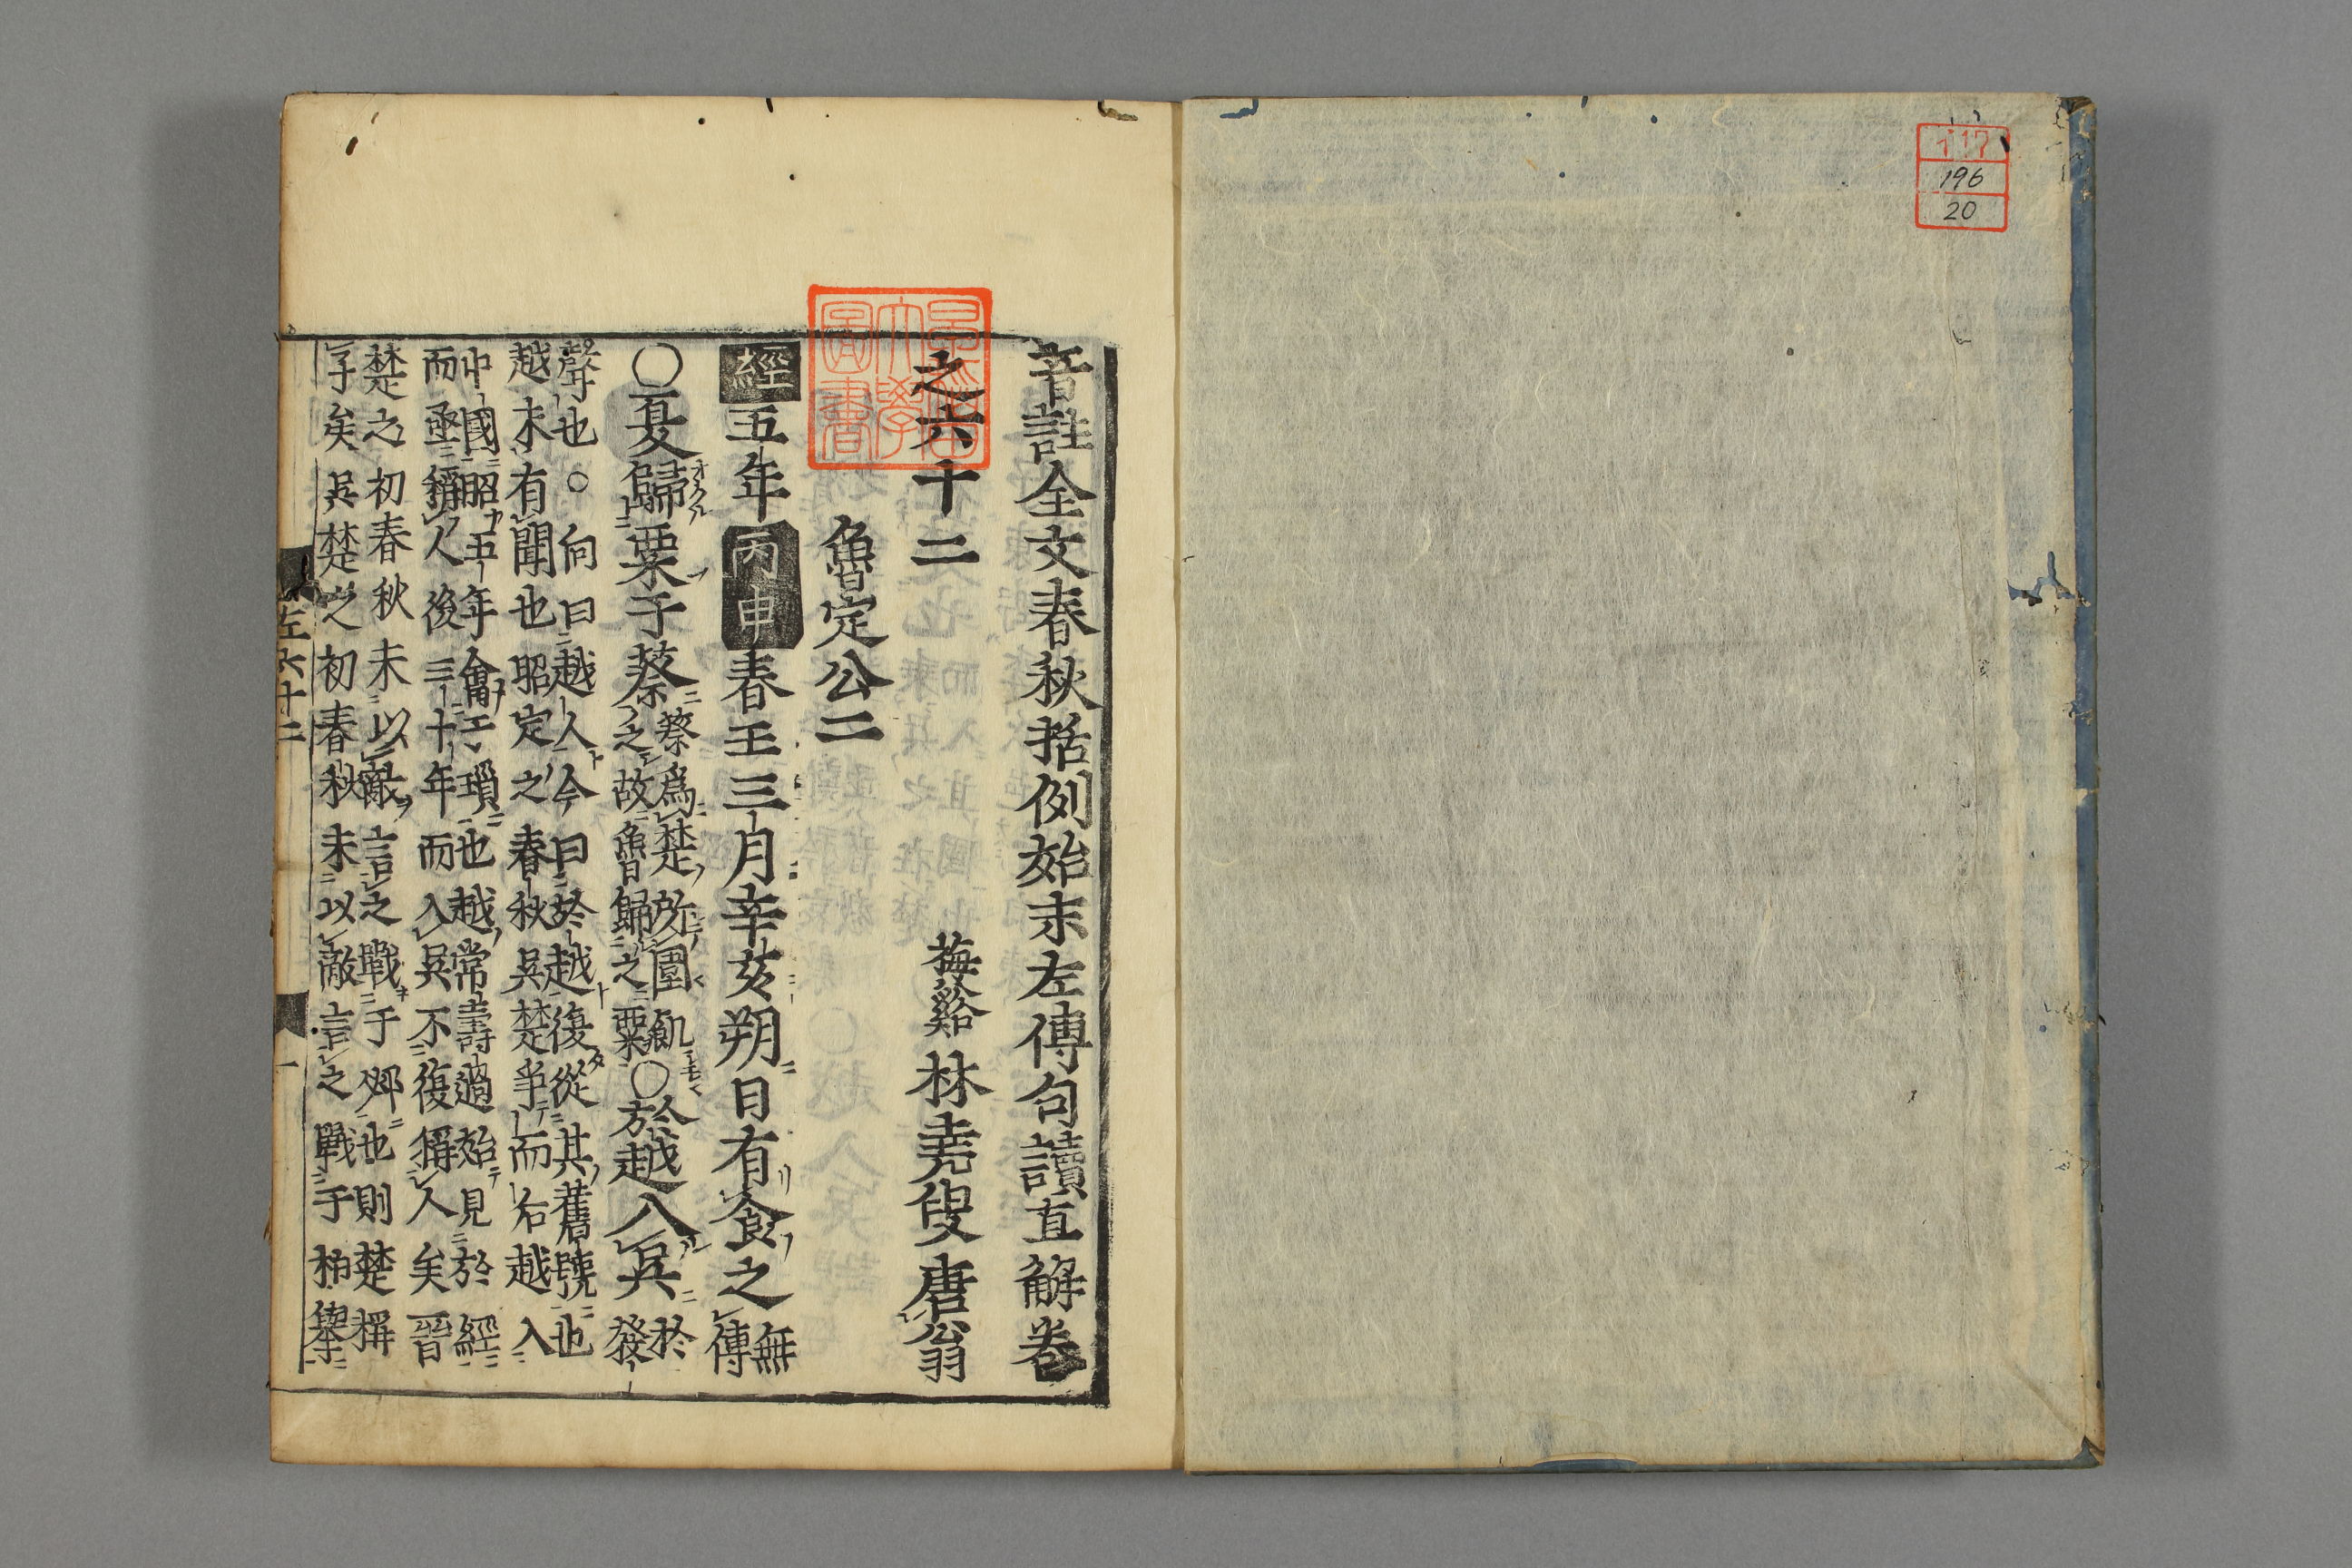 イ17
196
20
音註全文春秋括例始末左傳句讀直解卷
之六十二
梅谿 林堯叟 唐翁
魯定公二
經五年丙申春王三月辛亥朔日有食之無
傳
○夏歸粟于蔡蔡爲楚所圍飢
之故魯歸之粟○於越入吳於
發
聲也○何曰越人今曰於越復從其舊號也
越未有聞也昭定之春秋吳楚爭而右越入
中國昭五年會于瑣也越常壽過始見於經
而亟稱人後三十年而入吳不復稱人矣晉
楚之初春秋未以敵言之戰于邲也則楚稱
子矣吳楚之初春秋未以敵言之戰于柏舉
左六十二
一
早稲田大學圖書